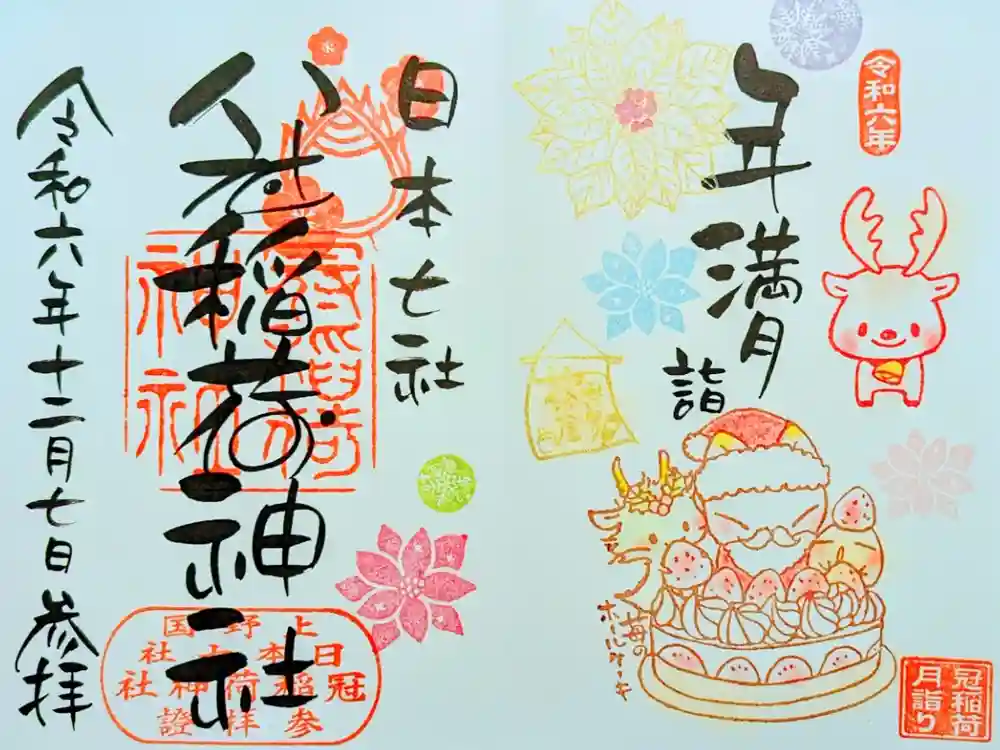 令和六年
年満月
詣
苺の
ホールケーキ
冠稲荷
月詣り
日本七社
稲荷神社
上野国
日本七社
冠稲荷神社
参拝證
令和六年十二月七日参拝